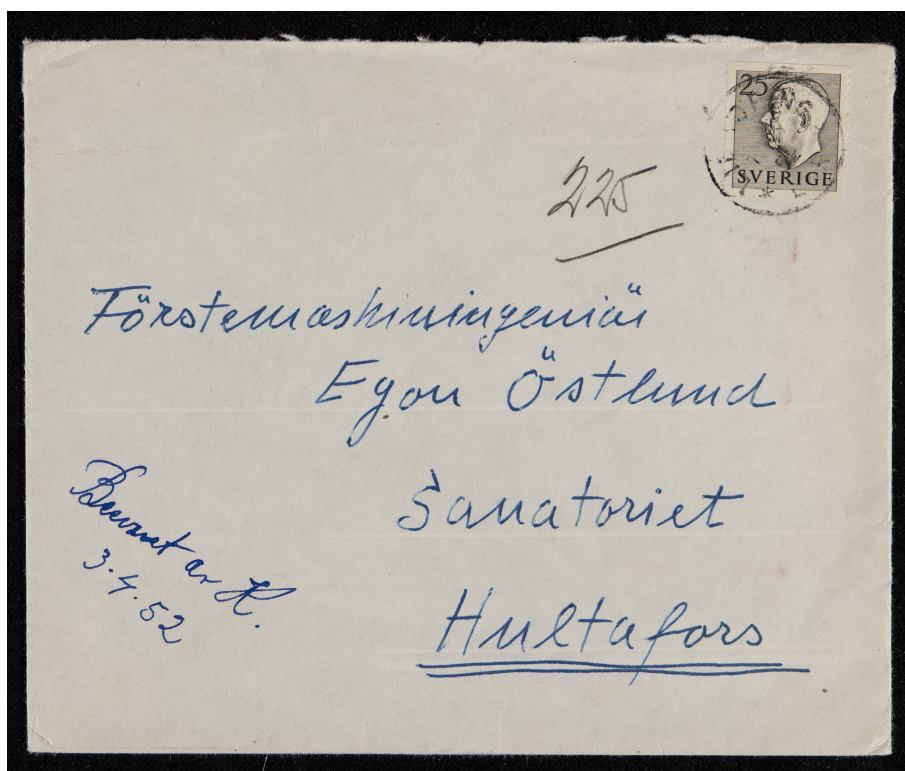 25
SVERIGE
225
Förstemaskiningeniör
Egon Östlund
Sanatoriet
Hultafors
Besvarat av H.
3.4.52